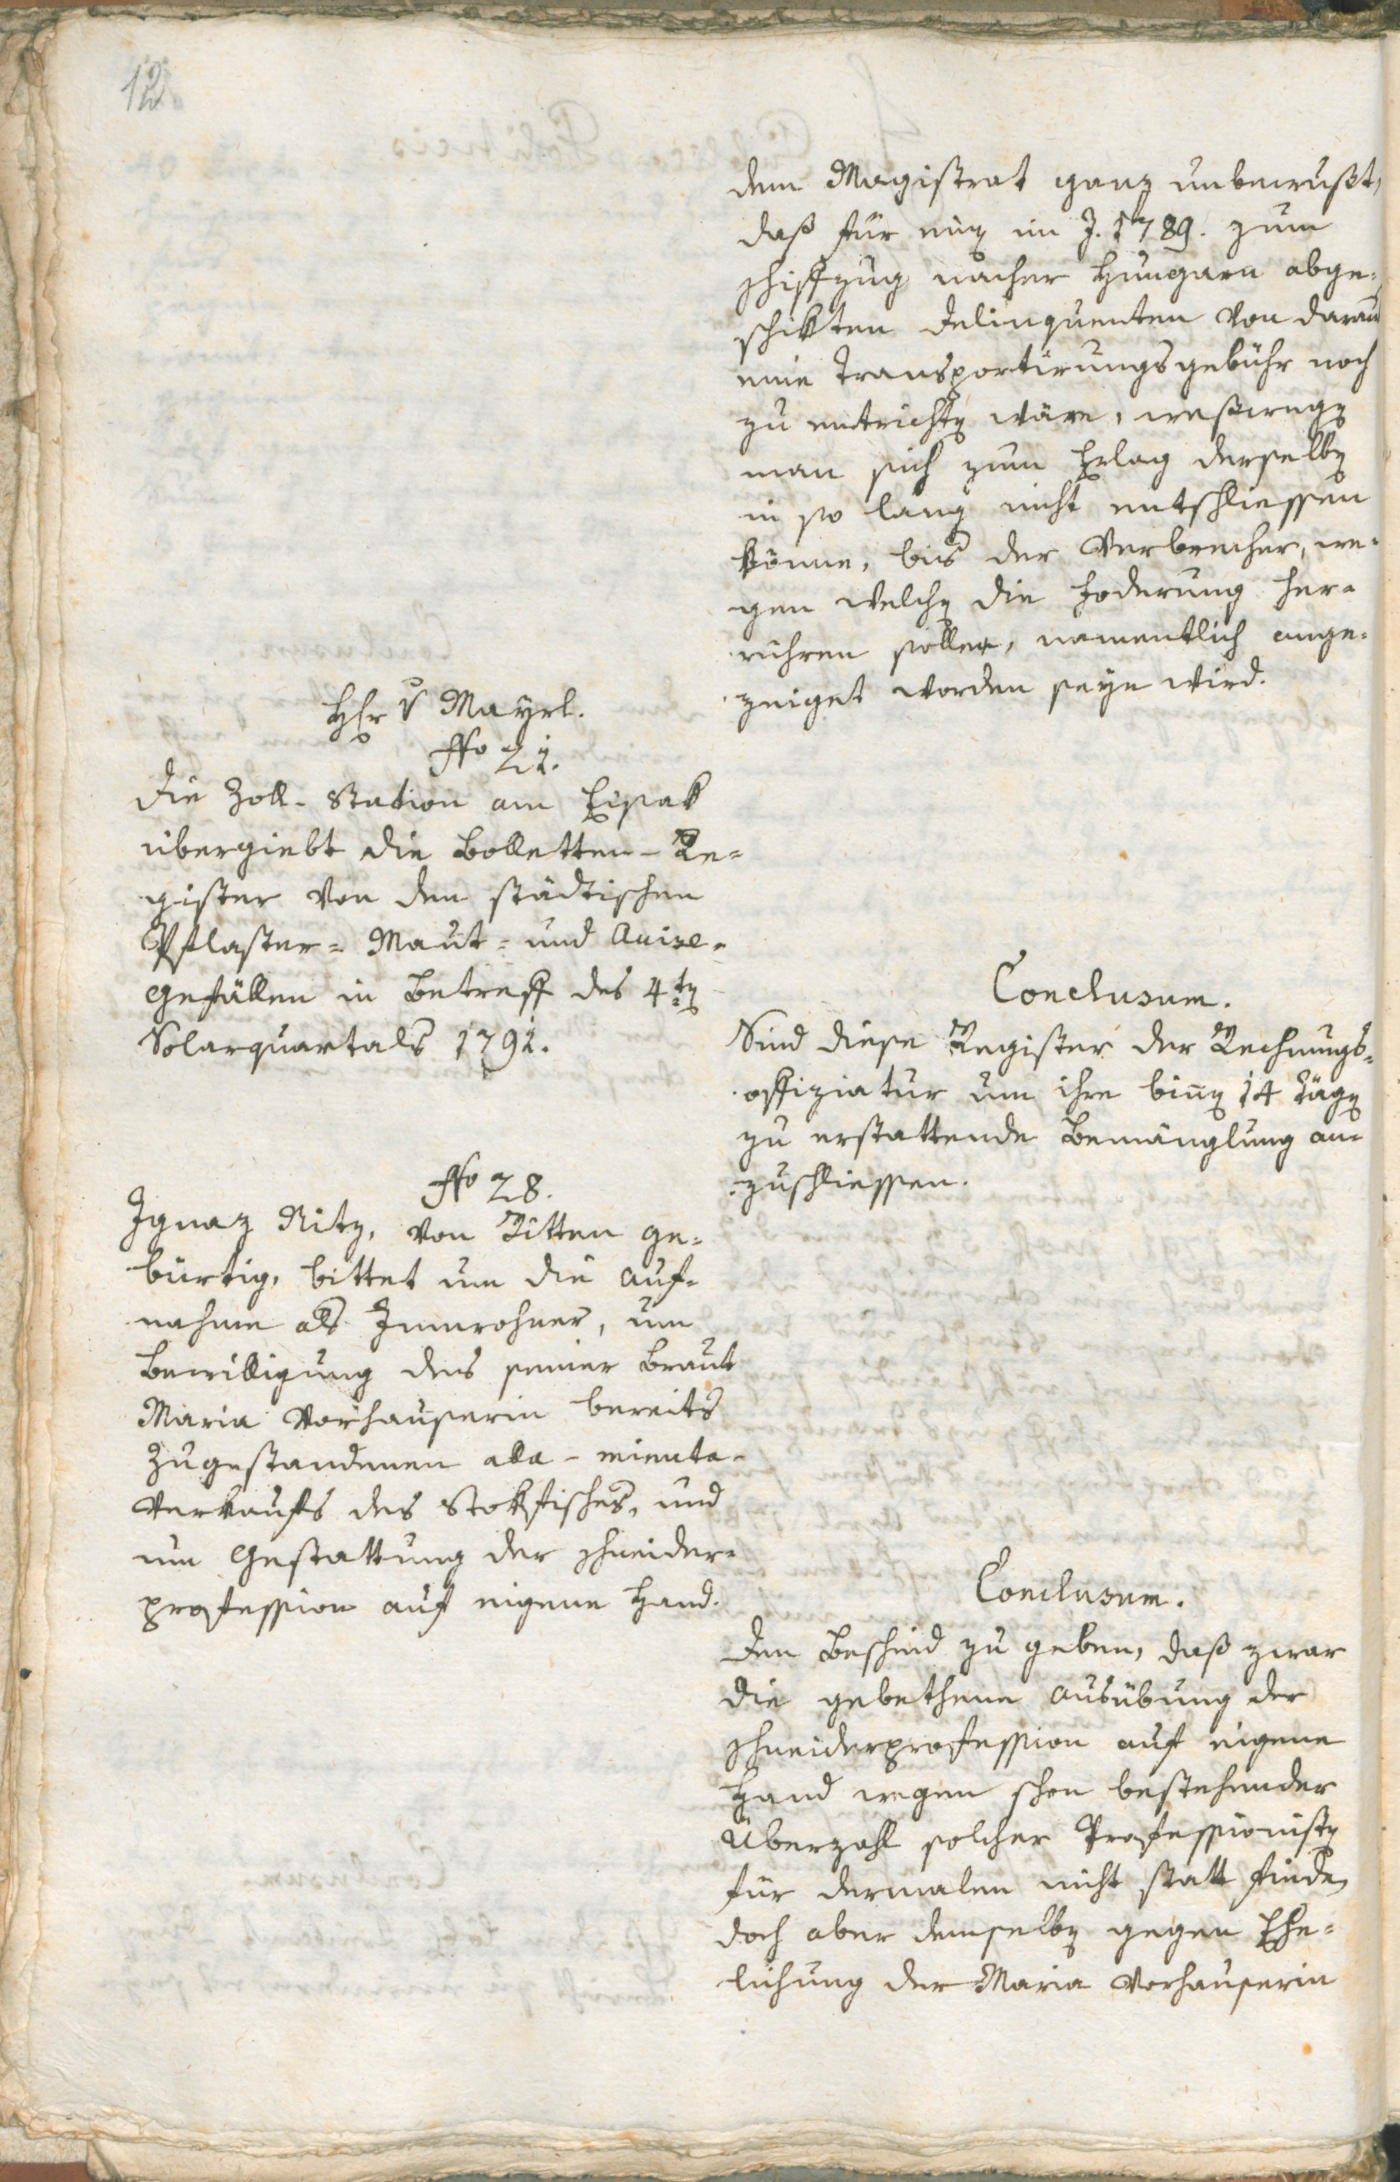 12
dem Magistrat ganz unbewußt,
daß für ein im J. 1789. zum
Schiffzug nacher Hungarn abge¬
schikten Delinquenten von daraus
eine Transportirungsgebühr noch
zu entrichten wäre, weßwegen
man sich zum Erlag derselben
in so lang nicht entschliessen
könne, bis der Verbrecher, we¬
gen welchen die Foderung her¬
rühren solle, namentlich ange¬
zeiget worden seyn wird.
Hr v Mayrl.
No 21.
Die Zoll-Station am Eisak
übergiebt die Bolletten-Re¬
gister von den städtischen
Pflaster= Maut= und Avise¬
gefällen in Betreff des 4ten
Solarquartals 1791.
Conclusum.
Sind diese Register der Rechnungs¬
offiziatur um ihre binen 14 Tägen
zu erstattende Bemänglung an¬
zuschliessen.
No 28.
Ignaz Ritz, von Ritten ge¬
bürtig, bittet um die Auf¬
nahme als Innwohner, um
Bewilligung des seiner Braut
Maria Vorhauserin bereits
zugestandenen alla-minuta-
Verkaufs des Stokfisches, und
um Gestattung der Schneider¬
profession auf eigene Hand.
Conclusum.
Den Bescheid zu geben, daß zwar
die gebethene Ausübung der
Schneiderprofession auf eigene
Hand wegen schon bestehender
Überzahl solcher Professionisten
für dermalen nicht statt finde,
doch aber demselben gegen Ehe¬
lichung der Maria Vorhauserin